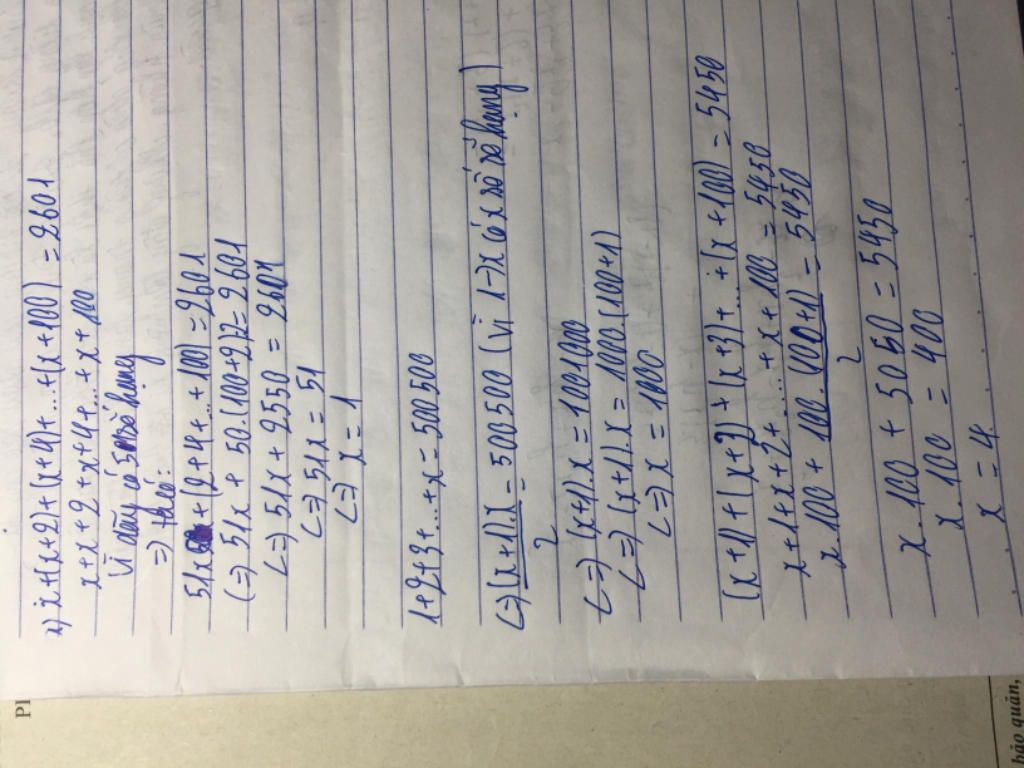 a) x+(x+2)+(x+4)+...+(x+100) = 2601
x+x+2+x+4+...+x+100
Vì dãy có 51 số hạng
=> ta có:
51x + (2+4+...+100) = 2601
(=) 51x + 50.(100+2):2 = 2601
<=> 51x + 2550 = 2601
<=> 51x = 51
<=> x = 1
1+2+3+...+x = 500500
<=> (x+1).x = 500500 (vì 1->x có x số số hạng)
2
<=> (x+1).x = 1001000
<=> (x+1).x = 1000.(1000+1)
<=> x = 1000
(x+1)+(x+2)+(x+3)+...+(x+100) = 5450
x+1+x+2+...+x+100 = 5450
x.100 + 100.(100+1) = 5450
2
x.100 + 5050 = 5450
x.100 = 400
x = 4.
Pl
bảo quản,